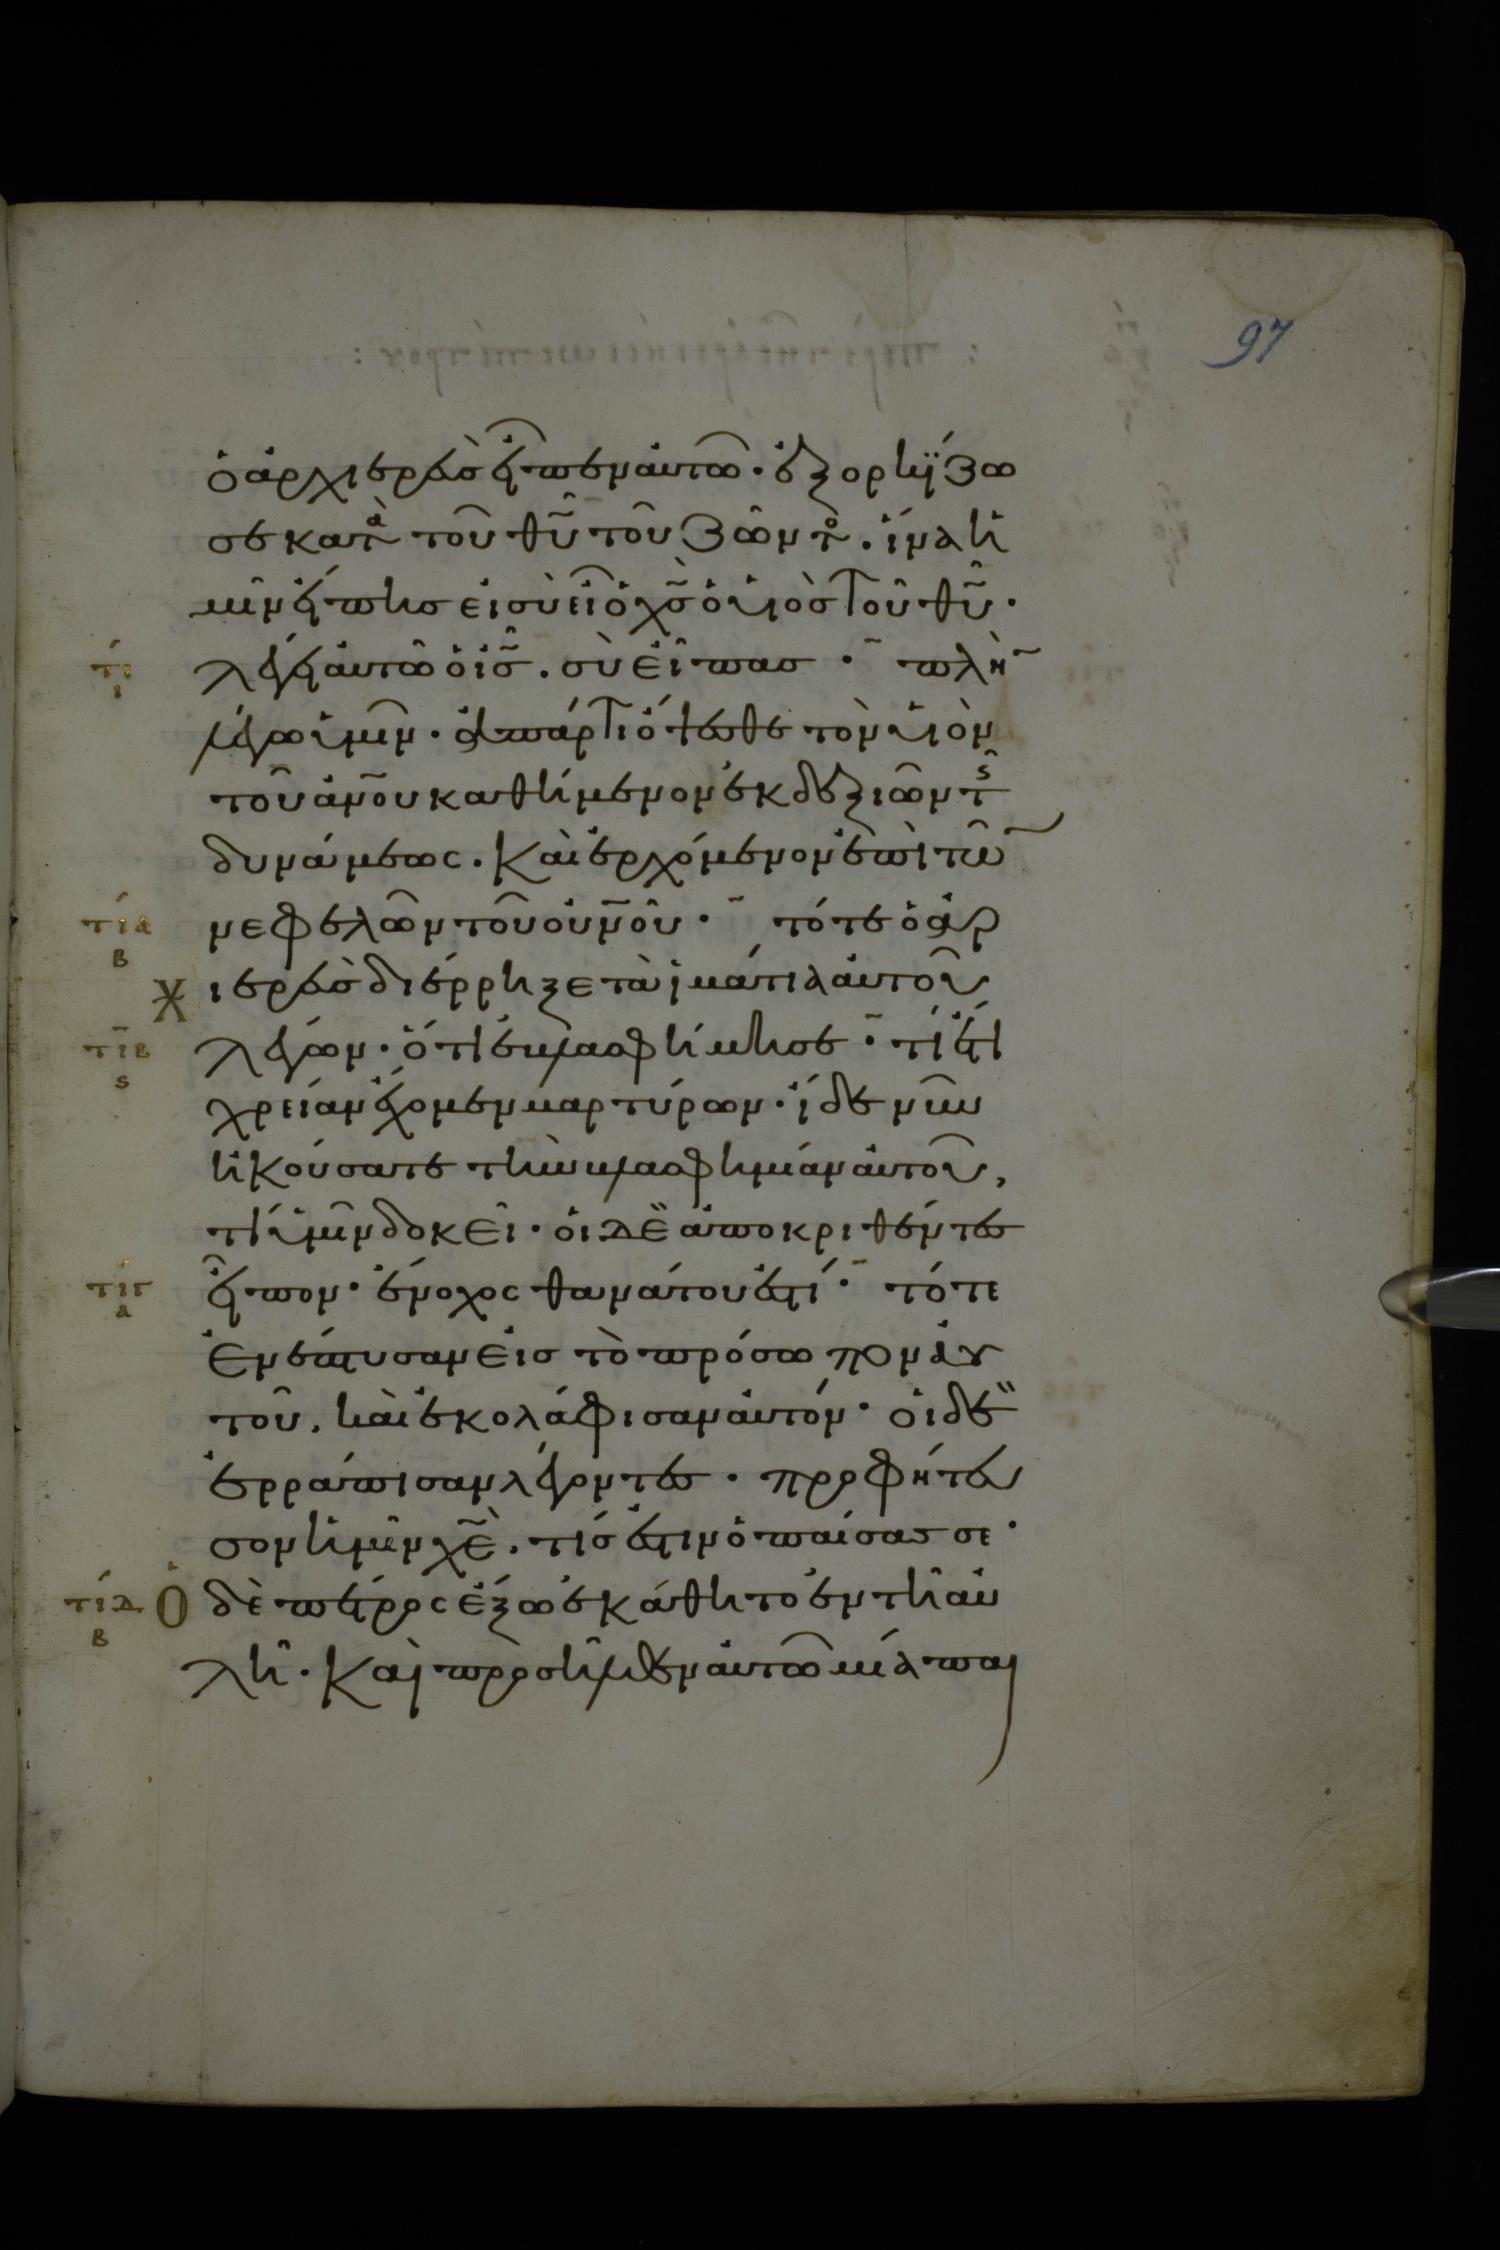 97
ὁ ἀρχιερεὺς εἶπεν αὐτῶ· ἐξορκΐζω
σε κατὰ τοῦ θῦ τοῦ ζῶντο. ἵνα ἡ
μῖν εἴπης εἰ σὺ εἶ ὁ χς ὁ υἱὸς τοῦ θῦ·
τι ι λέγει αὐτῶ ὁ ις. σὺ εἶπας· πλὴν
λέγω ὑμῖν· ἀπάρτι ὄψεσθε τὸν υἱὸν
τοῦ ἀνου καθήμενον ἐκ δεξιῶν τς
δυνάμεως. καὶ ἐρχόμενον ἐπὶ τῶν
τια β νεφελῶν τοῦ οὐνοῦ· τότε ὁ ἀρχ
ιερεὺς διέρρηξε τὰ ἱμάτια αὐτοῦ
τιβ ς λέγων· ὅτι ἐβλασφήμησε· τί ἔτι
χρείαν ἔχομεν μαρτύρων· ἴδε νῦν
ἠκούσατε τὴν βλασφημίαν αὐτοῦ,
τί ὑμῖν δοκεῖ· οἱ δὲ ἀποκριθέντες
τιγ α εἶπον· ἔνοχος θανάτου ἐστί· τότε
ἐνέπτυσαν εἰς τὸ πρόσωπον αὐ
τοῦ, καὶ ἐκολάφισαν αὐτόν· οἱ δὲ
ἐρράπισαν λέγοντες· προφήτευ
σον ἡμῖν χὲ. τίς ἐστιν ὁ παίσας σε·
τιδ β Ὁ δὲ πέτρος ἔξω ἐκάθητο ἐν τῆ αὐ
λῆ· καὶ προσῆλθεν αὐτῶ μία παι